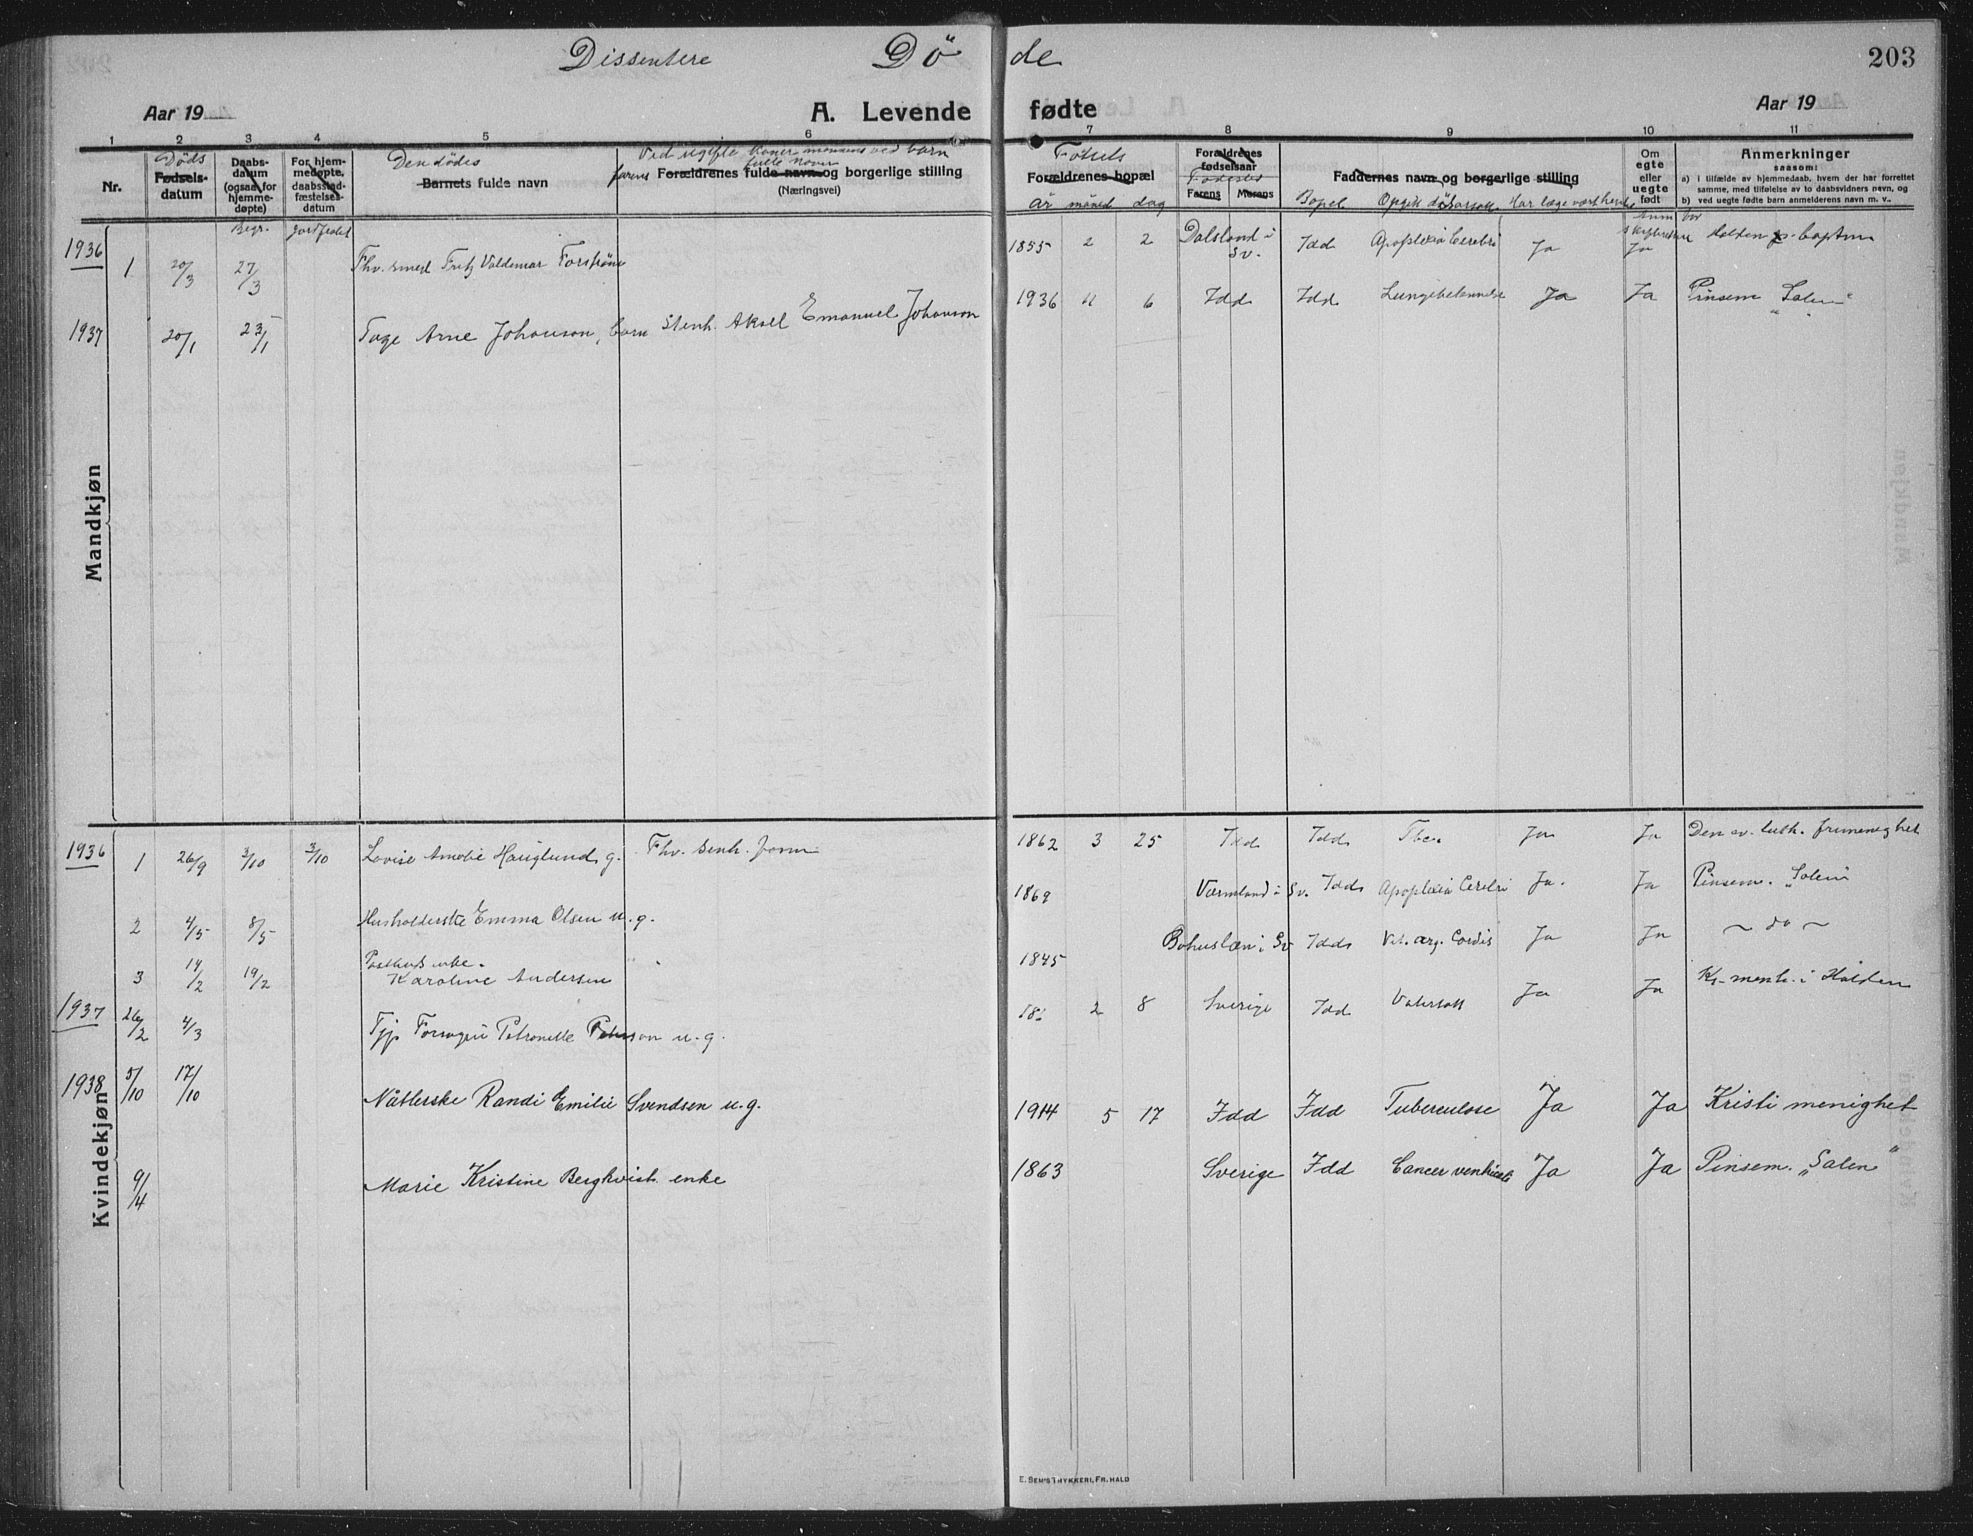 Dissentere Dö de 203
Aar 19 A. Levende fødte Aar 19
1 2 3 4 5 6 7 8 9 10 11
Nr.
Døds
Fødsels-
datum
Daabs-
datum
(ogsaa for
hjemme-
døpte)
Begr.
For hjem-
medøpte,
daabsstad-
fæstelses-
datum
Jordfestet
Den dødes
Barnets fulde navn
Ved ugifte koner mennens ved barn
farens fulle navn
Forældrenes fulde navn og borgerlige stilling
(Næringsvei)
Fødsels
Forældrenes bopæl
år måned dag
Forældrenes
fødselsaar
Fødested
Farens Morens
Faddernes navn og borgerlige stilling
Bopel Opgitt dødsårsak Har læge vært hentet
Om
egte
eller
uegte
født
Anmerkninger
saasom:
a) i tilfælde av hjemmedaab, hvem der har forrettet
samme, med tilføielse av to daabsvidners navn, og
b) ved uegte fødte barn anmelderens navn m. v.
Mandkjøn
1936 1 20/3 27/3 Fhv. smed Fritz Valdemar 1855 2 2 Dalsland i Sv. Idd Apoplexia Cerebri Ja Ja Halden
1937 20/1 23/1 Tage Arne Johanson, barn Stenh. Aksel Emanuel Johanson 1936 11 6 Idd Idd Lungebetennelse Ja Ja Pinsem "Salem"
Kvindekjøn
1936 1 26/9 3/10 3/10 Lovise Amalie Hauglund g. Fhv. stenh. 1862 3 25 Idd Idd Tbc. Ja Ja Den ev. luth. frimenighet
2 4/5 8/5 Husholderske Emma Olsen u. g. 1869 Værmland i Sv. Idd Apoplexia Cerebri Ja. Ja Pinsem. "Salem"
3 14/2 19/2 enke. Karoline Andersen 1845 Bohuslæn i Sv Idd Vit. org. Cordis Ja Ja ~ do ~
1937 26/2 4/3 Petronelle u. g. 18 2 8 Sverige Idd Ja Ja Kr. menh. i Halden
1938 5/10 17/10 Randi Emilie Svendsen u. g. 1914 5 17 Idd Idd Tuberculose Ja Ja Kristi menighet
9/4 Marie Kristine Bergkvist enke 1863 Sverige Idd Cancer ventriculi Ja Ja Pinsem. "Salem"
E. SEM'S TRYKKERI, FR.HALD